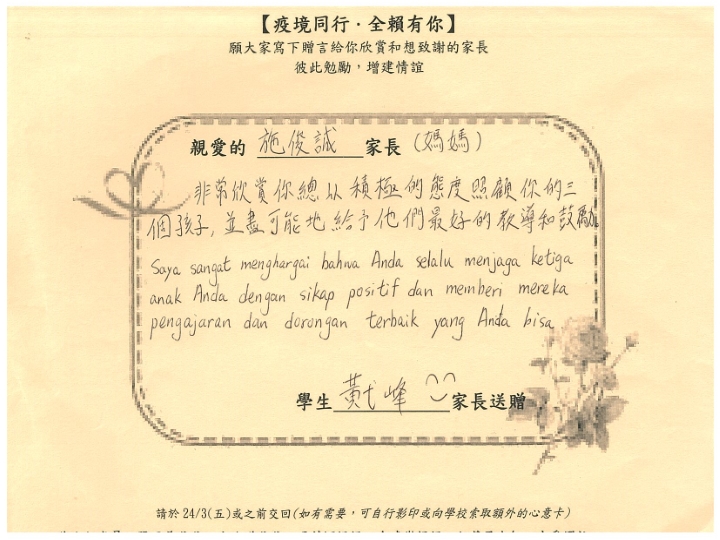 【疫境同行‧全賴有你】
願大家寫下贈言給你欣賞和想致謝的家長
彼此勉勵，增建情誼
親愛的 施俊誠 家長 (媽媽)
非常欣賞你總以積極的態度照顧你的三
個孩子，並盡可能地給予他們最好的教導和鼓勵。
Saya sangat menghargai bahwa Anda selalu menjaga ketiga
anak Anda dengan sikap positif dan memberi mereka
pengajaran dan dorongan terbaik yang Anda bisa
學生 黃弋峰 家長送贈
請於 24/3(五)或之前交回(如有需要，可自行影印或向學校索取額外的心意卡)